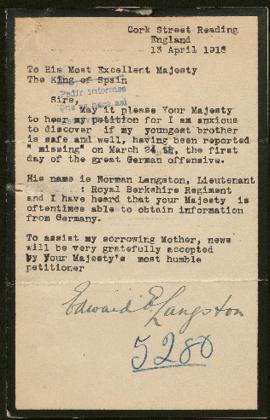 Cork Street Reading
England
13 April 1918
To His Most Excellent Majesty
The King of Spain
Sire,
May it please Your Majesty
to hear my petition for I am anxious
to discover if my youngest brother
is safe and well, having been reported
" missing" on March 21 st, the first
day of the great German offensive.
His name is Norman Langston, Lieutenant
: Royal Berkshire Regiment
and I have heard that your Majesty is
oftentimes able to obtain information
from Germany.
To assist my sorrowing Mother, news
will be very gratefully accepted
by Your Majesty's most humble
petitioner
Edward E Langston
5280